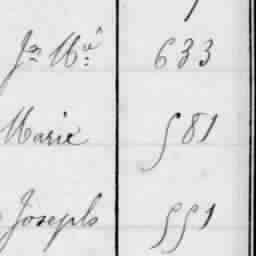 Jn Mie 633
Marie 581
Joseph 551